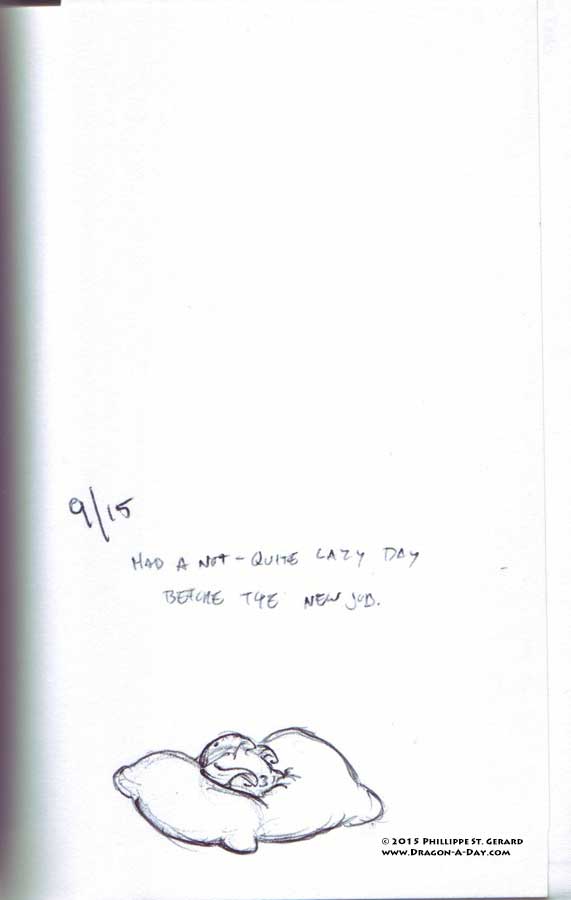 9/15
HAD A NOT-QUITE LAZY DAY
BEFORE THE NEW JOB.
© 2015 PHILLIPPE ST. GERARD
WWW.DRAGON-A-DAY.COM